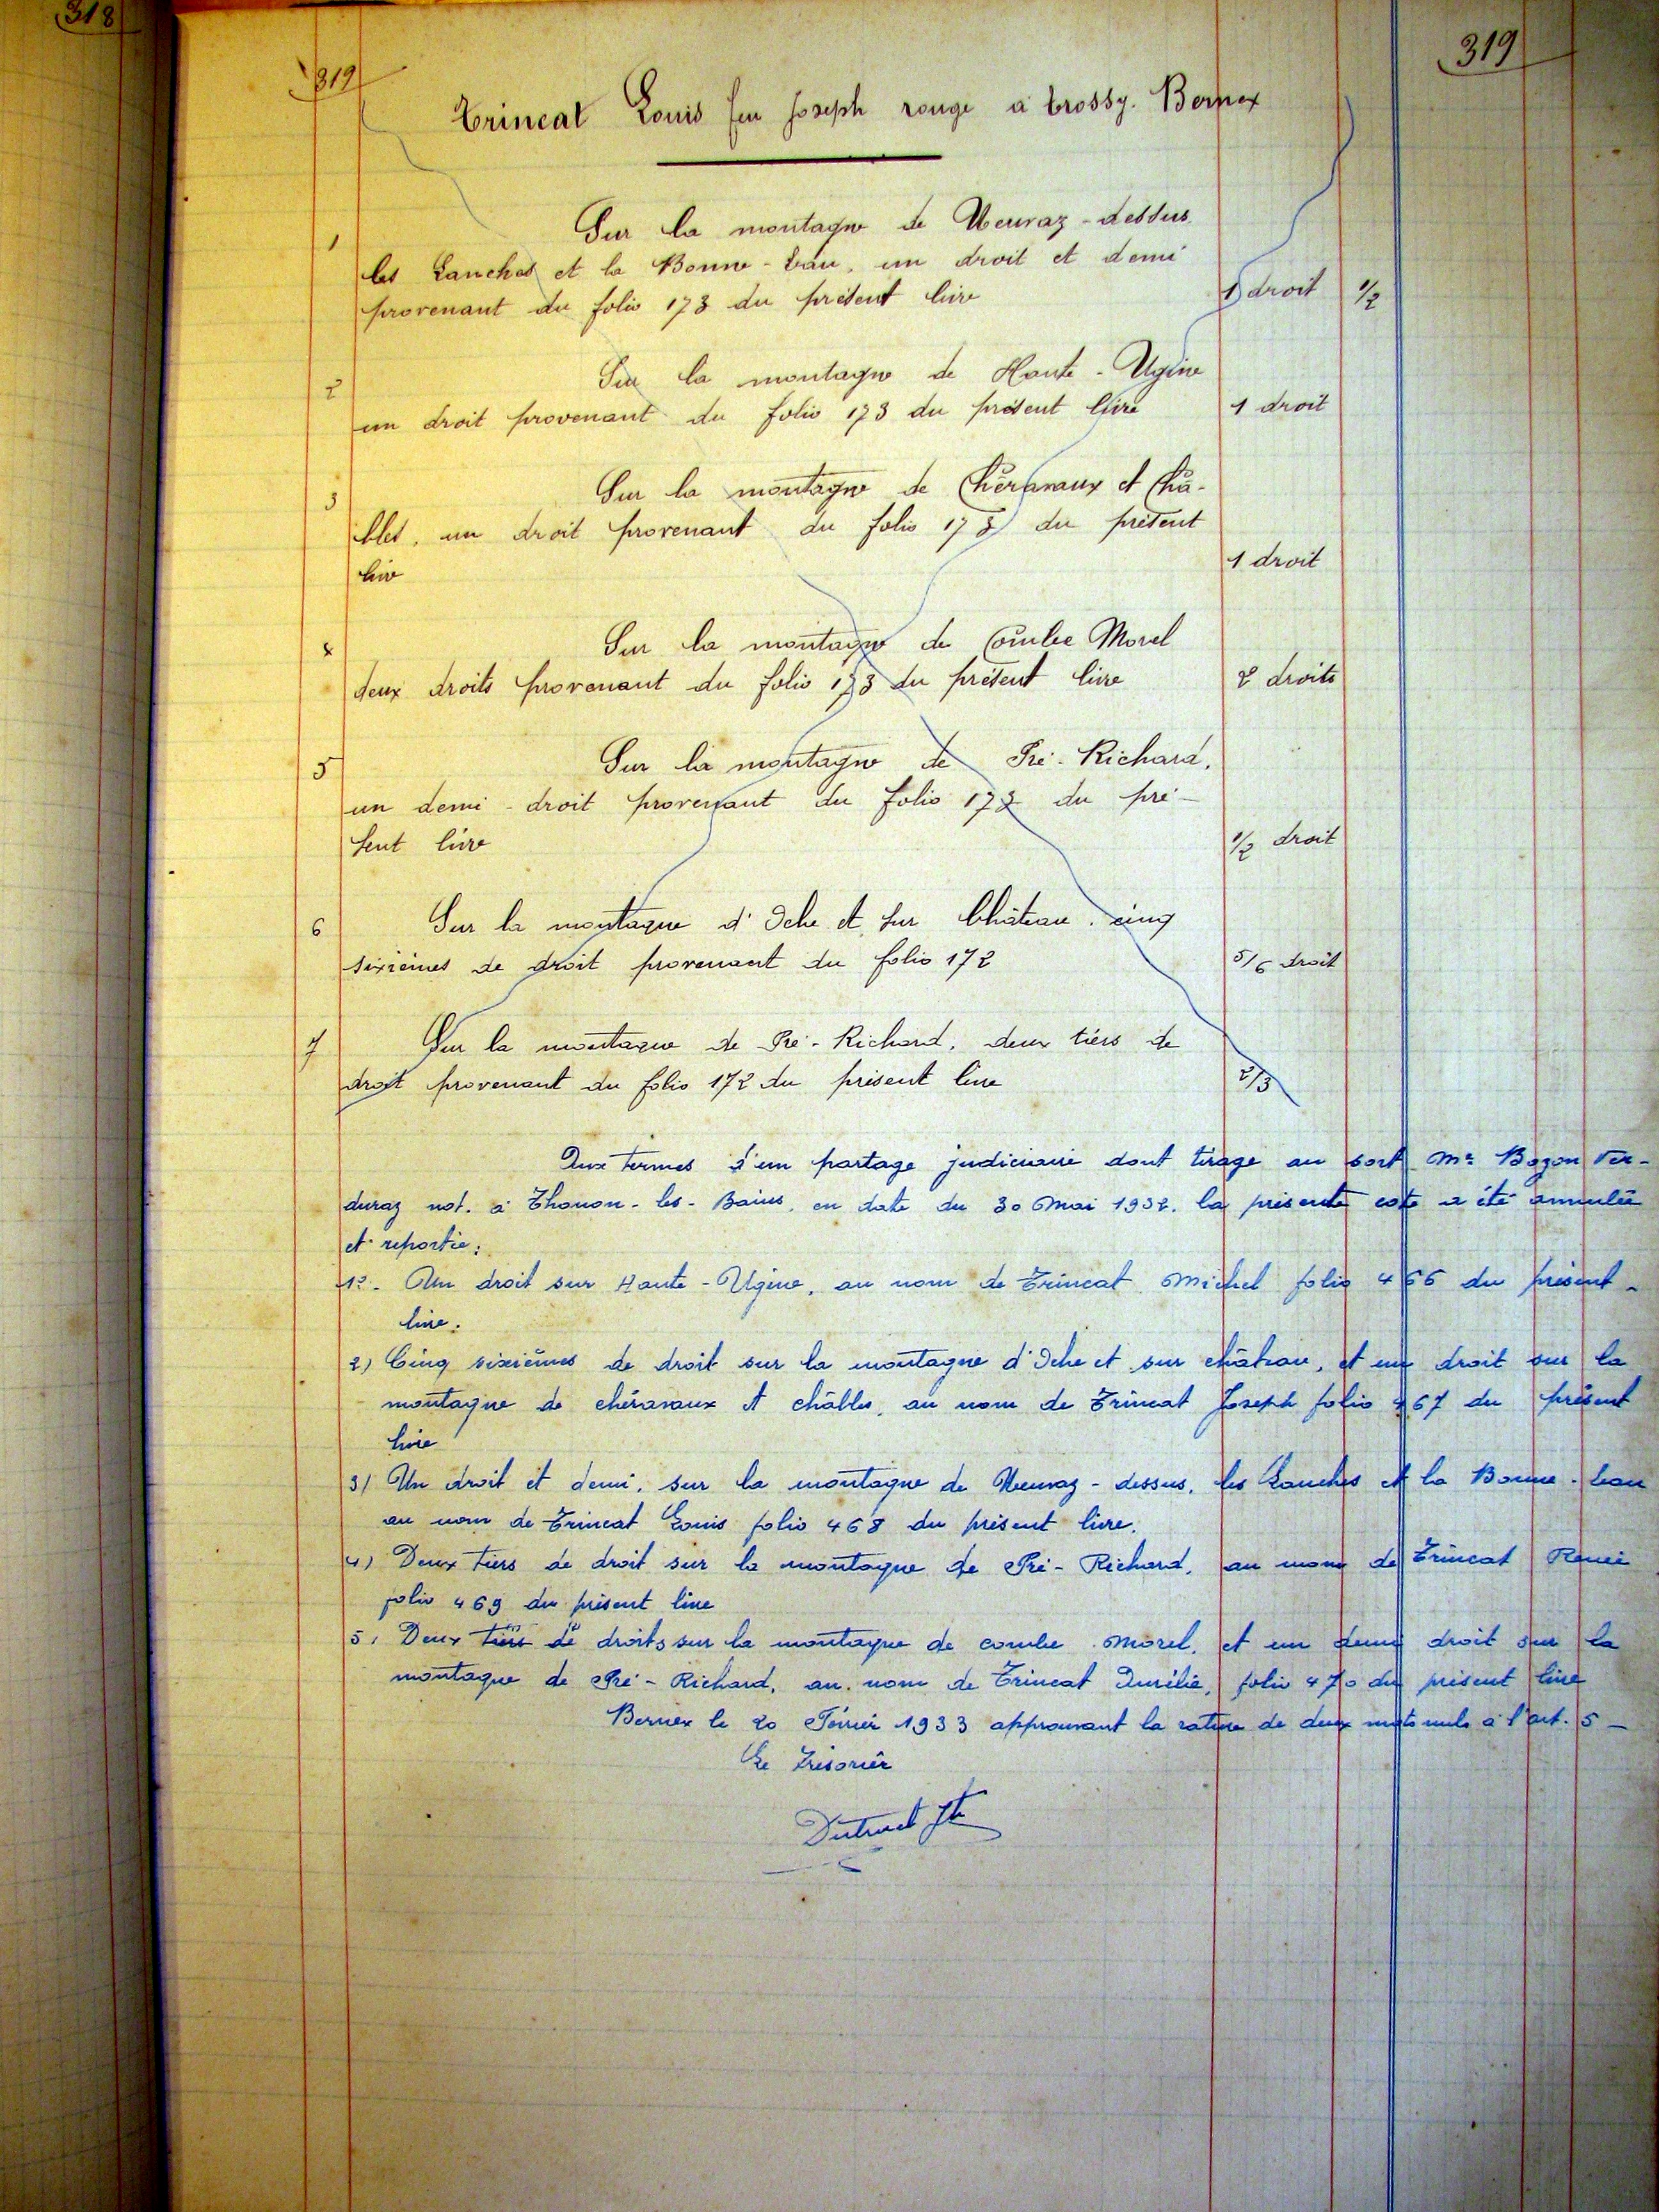 318
319
319
Trincat Louis feu Joseph rouge à Trossy. Bernex
1
Sur la montagne de Neuvaz-dessus
les Lanches et la Bonne-Eau, un droit et demi
provenant du folio 173 du présent livre
1 droit 1/2
2
Sur la montagne de Haute-Ugine
un droit provenant du folio 173 du présent livre
1 droit
3
Sur la montagne de Chéravaux et Châ-
bles, un droit provenant du folio 173 du présent
livre
1 droit
4
Sur la montagne de Combe Morel
deux droits provenant du folio 173 du présent livre
2 droits
5
Sur la montagne de Pré-Richard,
un demi-droit provenant du folio 173 du pré-
sent livre
1/2 droit
6
Sur la montagne d'Oche et sur Château, cinq
sixièmes de droit provenant du folio 172
5/6 droit
7
Sur la montagne de Pré-Richard, deux tiers de
droit provenant du folio 172 du présent livre
2/3
Aux termes d'un partage judiciaire dont tirage au sort Me Bozon Ver-
duraz not. à Thonon-les-Bains, en date du 30 Mai 1932, la présente cote a été annulée
et reportée:
1º- Un droit sur Haute-Ugine, au nom de Trincat Michel folio 466 du présent-
livre.
2) Cinq sixièmes de droit sur la montagne d'Oche et sur château, et un droit sur la
montagne de chéravaux et châbles, au nom de Trincat Joseph folio 467 du présent
livre
3) Un droit et demi, sur la montagne de Neuvaz-dessus, les Lanches et la Bonne-Eau
au nom de Trincat Louis folio 468 du présent livre.
4) Deux tiers de droit sur la montagne de Pré-Richard, au nom de Trincat Renée
folio 469 du présent livre
5) Deux tiers de droits sur la montagne de combe Morel, et un demi droit sur la
montagne de Pré-Richard, au nom de Trincat Aurélie, folio 470 du présent livre
Bernex le 20 Février 1933 approuvant la rature de deux mots nuls à l'art. 5-
Le Trésorier